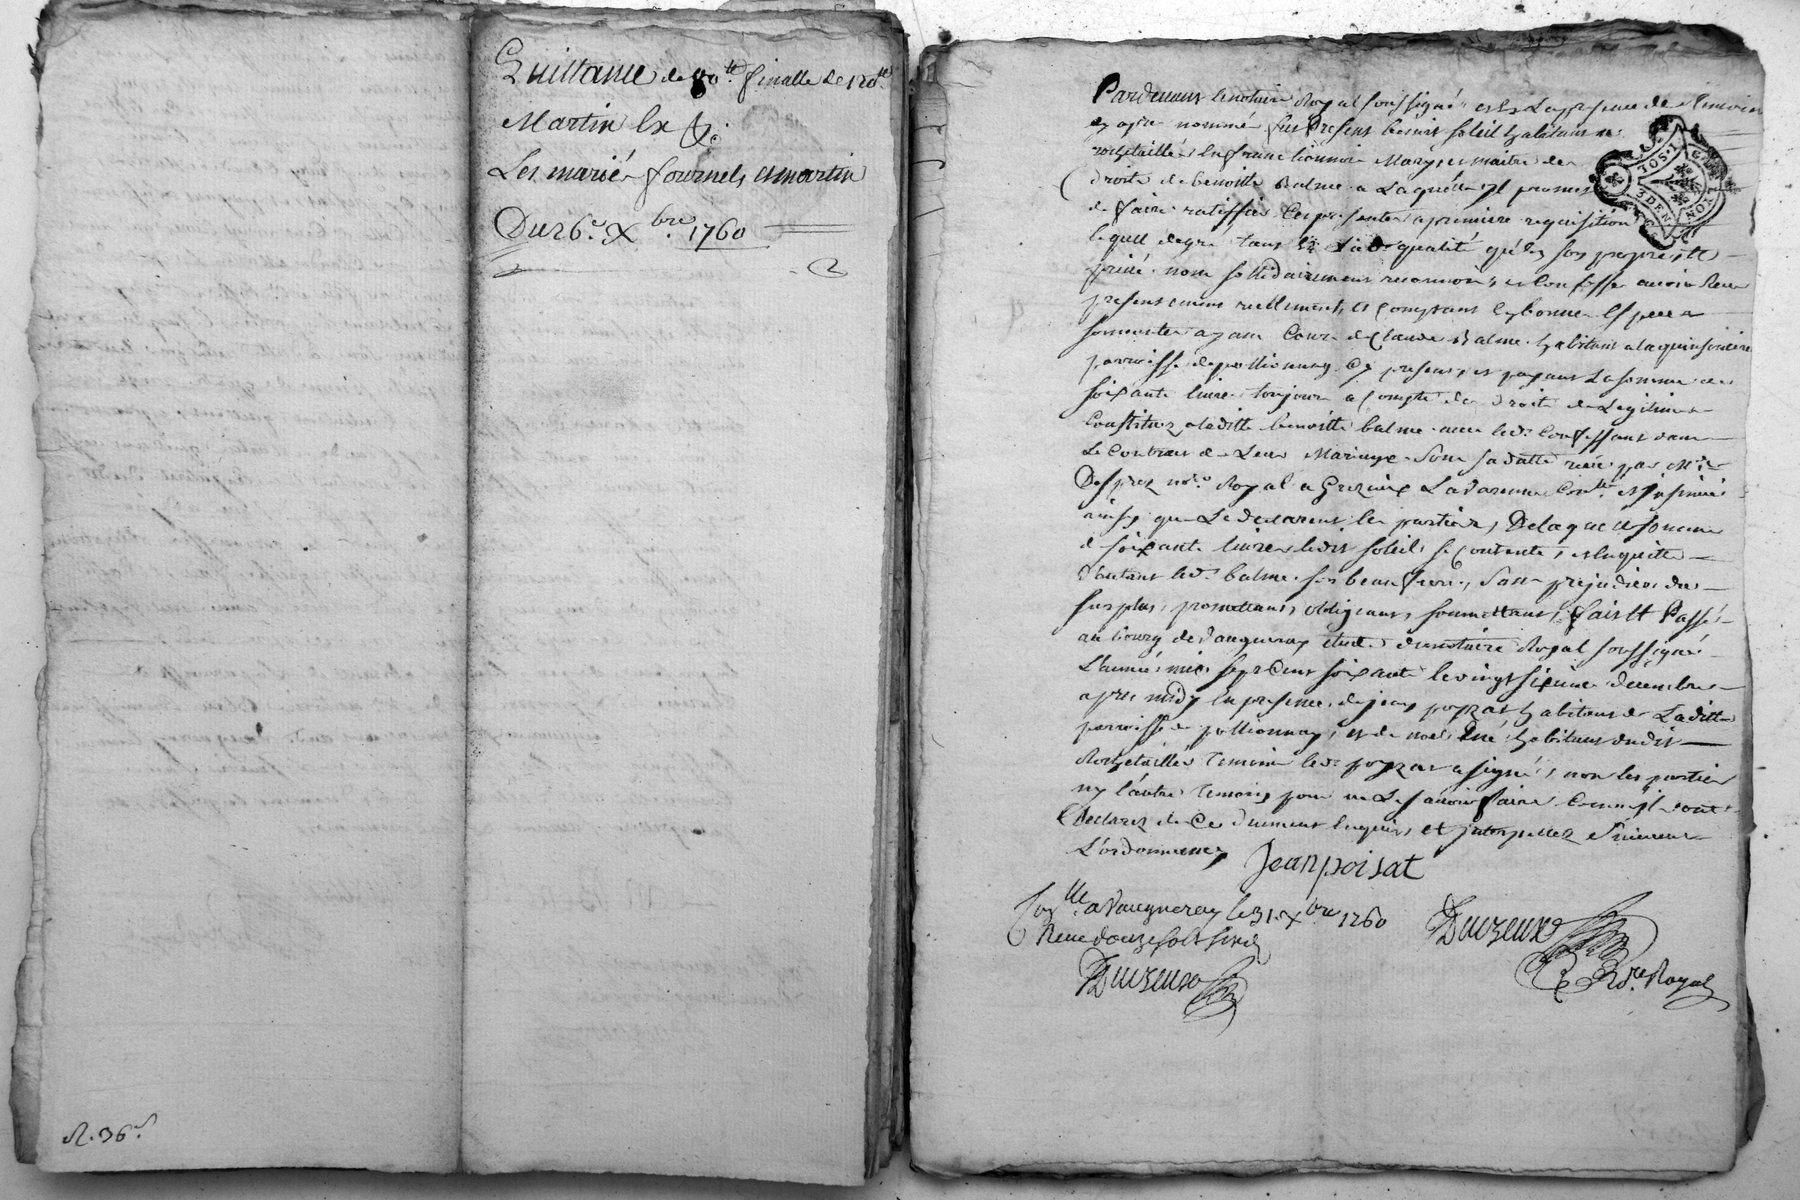 Quittance de 80tt finalle de 120tt
Martin Ex &c
Les mariés fournels et martin
Du 26e Xbre 1760
R. 36s
Pardevant le notaire Royal soussigné et en la presence des temoins
cy apres nommés fut present benoit soleil habitant a
rochetaillée en franc lionnois Mary et maitre des
droits de benoitte Balme a Laquelle il promet
de faire ratiffier les presentes a premiere requisition
lequel de gré tant en sadte qualité qu'en son propre et
privé nom sollidairement reconnoit et confesse avoir Receu
presentement reellement et comptant en bonnes Especes
sonnantes ayant Cours de Claude Balme habitant a la quinsoniere
parroisse de pollionnay Cy present et payant La somme de
soixante livres toujours a compte des droits de Legitime
Constituez a laditte benoitte balme avec led. Confessant dans
Le Contrat de Leur Mariage sous sa datte receu par Me
Desprez nore Royal a Grezieux La Varenne Conllé et insinué
ainsy que Le declarent les parties, De laquelle somme
de soixante livres ledit soleil se contente, et en quitte
d'autant led. balme son beau frere, sans prejudice du
surplus, promettant, obligeant, soumettant, fait Et Passé
au bourg de Vaugneray etude du notaire Royal soussigné
L'année mil sept Cent soixante le vingt sixieme decembre
apres midy en presence de jean poyzat habitant de Laditte
parroisse de pollionnay, et de noel habitant dudit
Rochetaillée temoins led. poyzat a signé, non les parties
ny l'autre temoin pour ne Le sçavoir faire Comme ils ont
Declaré de Ce duement enquis et interpellez suivant
L'ordonnance
Jean poisat
Conllé a Vaugneray le 31 Xbre 1760
Receu douze sols six d
GEN. LYON
1 SOL
3 DEN
Nre Royal